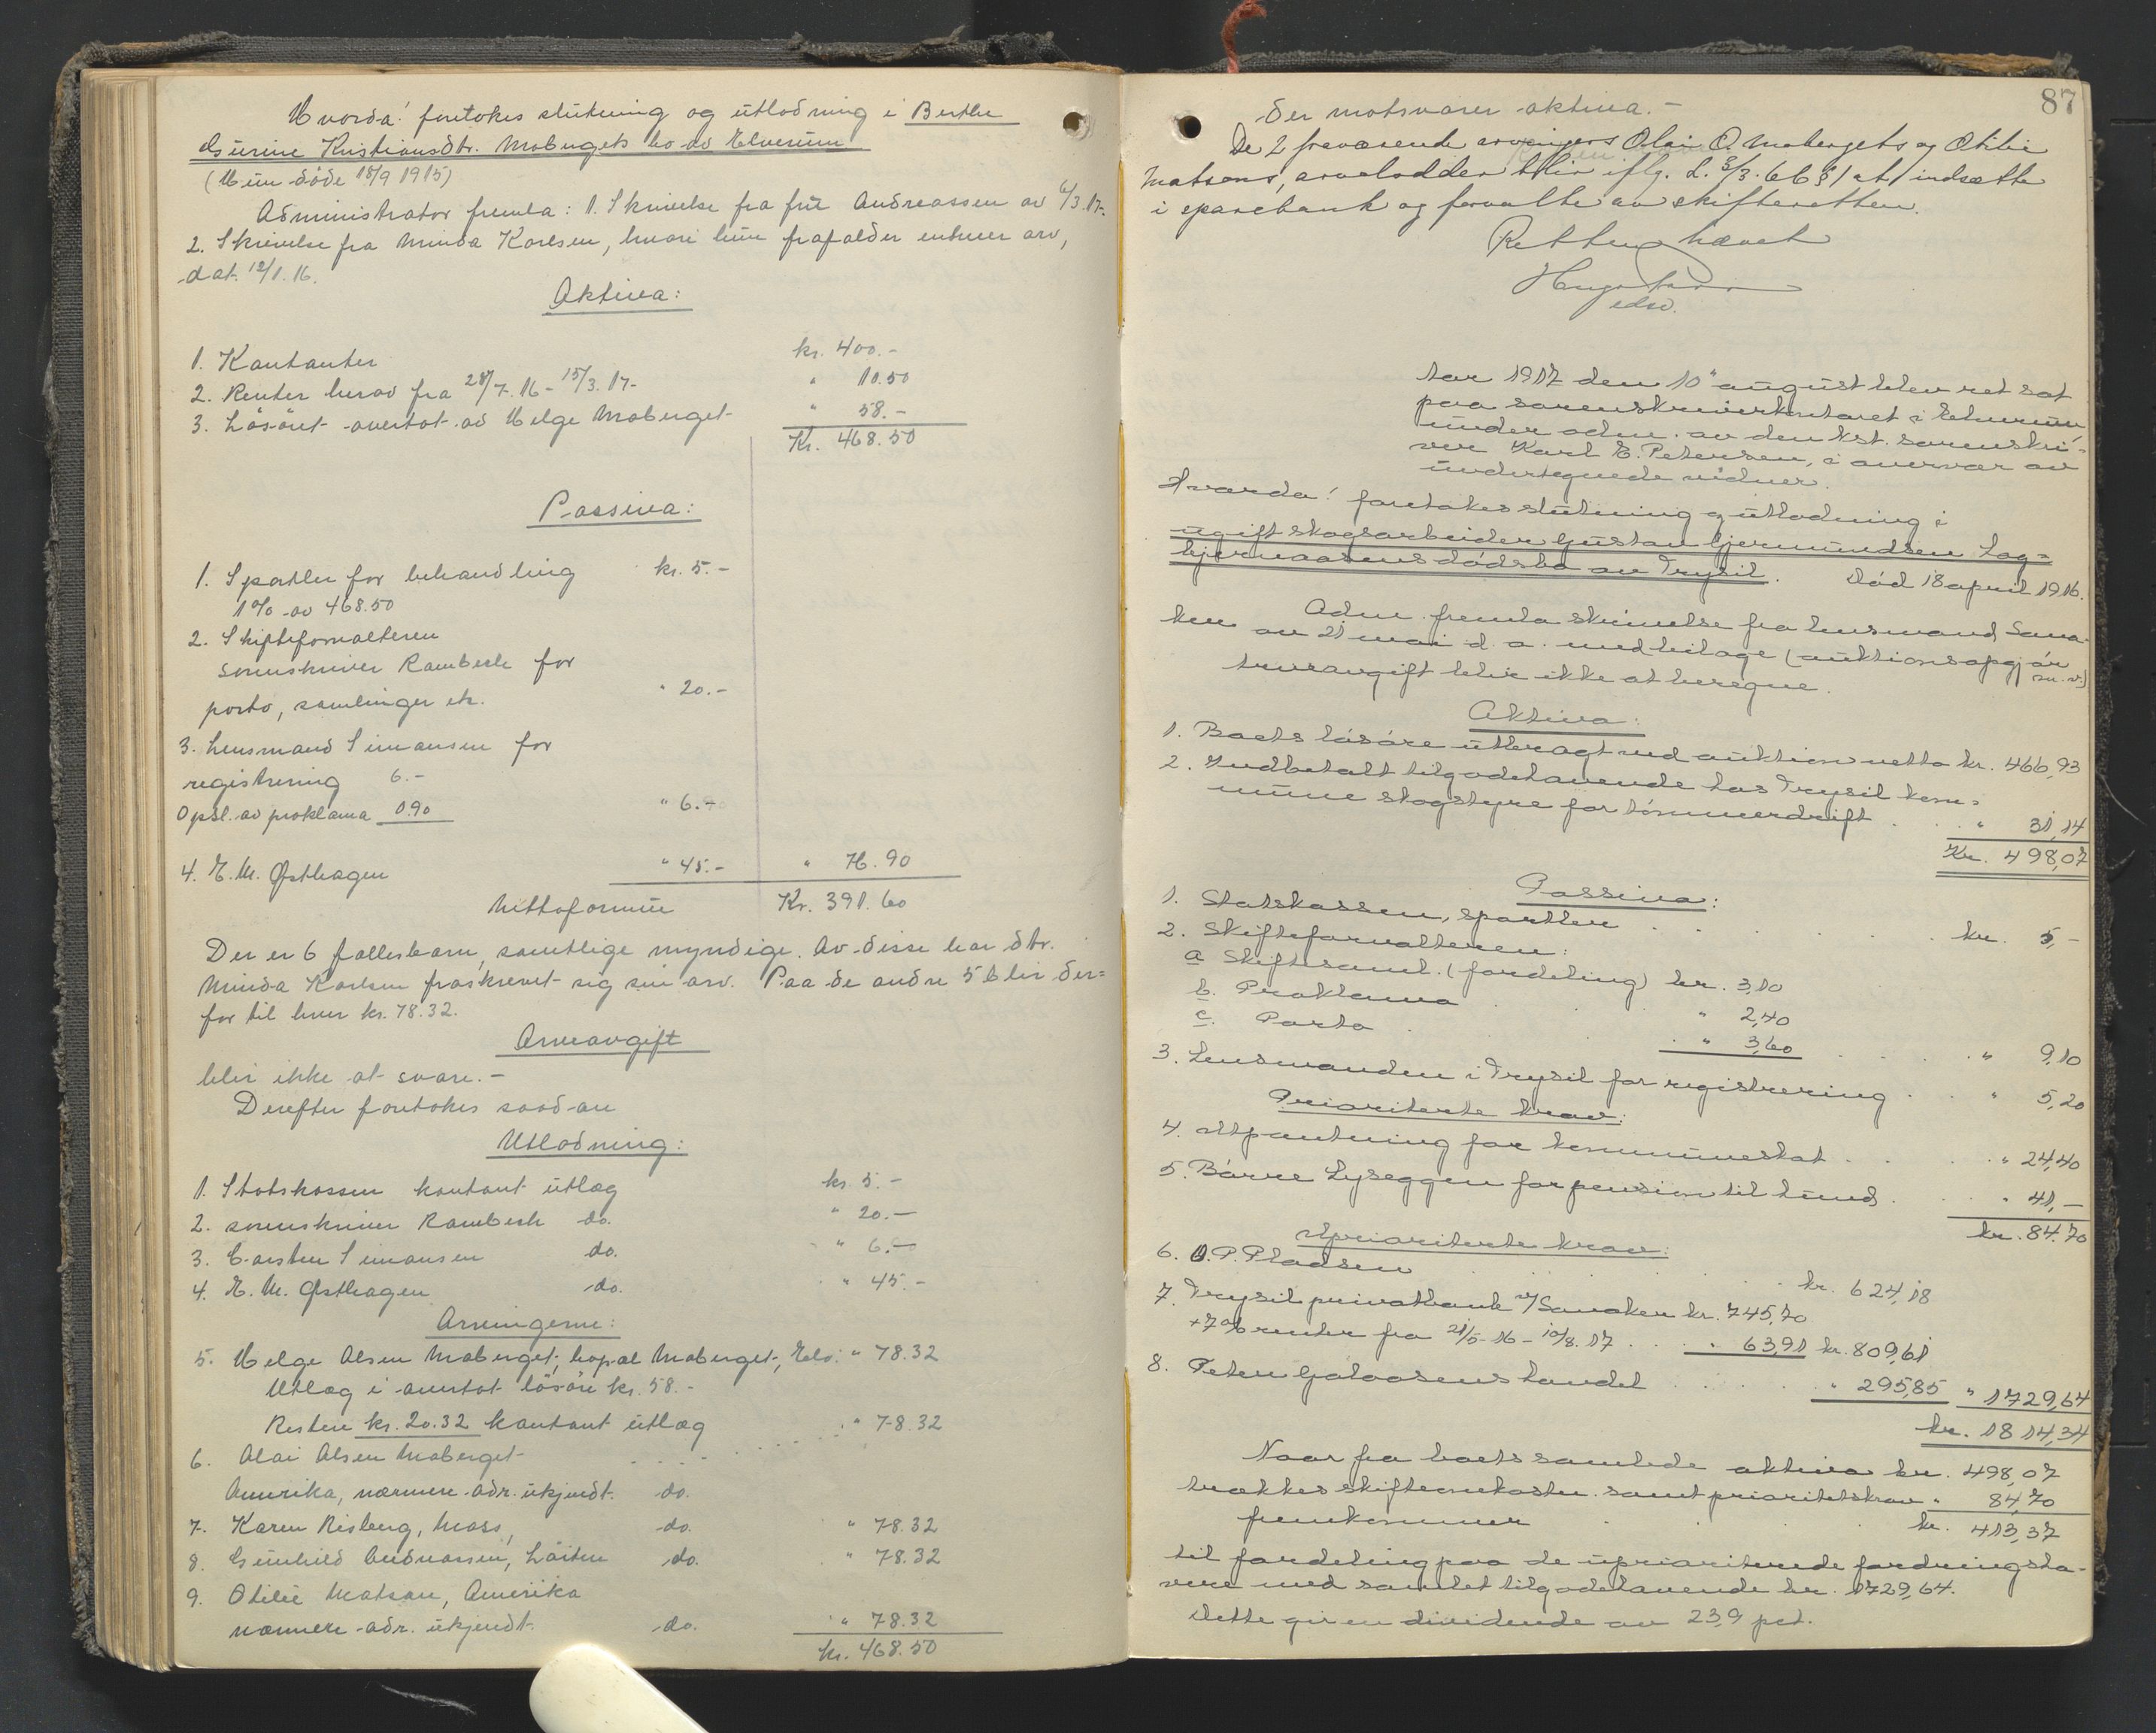 Hvorda! foretokes slutning og utlodning i Berthe
Gurine Kristiansdtr. Mobergets bo av Elverum
(Hun døde 18/9 1915)
Administrator fremla: 1. Skrivelse fra frü Andreassen av 6/3.17.
2. Skrivelse fra Minda Karlsen, hvori hun frafalder enhver arv,
dat. 12/1.16.
Aktiva:
1. Kontanter kr. 400.-
2. Renter herav fra 28/7.16 - 15/3.17- " 10.50
3. Løsøret overtat av Helge Moberget " 58.-
Kr. 468.50
Passiva:
1. Sportler for behandling kr. 5.-
1% av 468.50
2. Skifteforvalteren
sorenskriver Rambech for
porto, samlinger etc. " 20.-
3. Lensmand Simensen for
registrering 6.-
Opsl. av proklama 0.90 " 6.90
4. E. M. Østhagen " 45.- " 76.90
Nettoformue Kr. 391.60
Der er 6 fællesbarn, samtlige myndige. Av disse har dtr.
Minda Karlsen fraskrevet sig sin arv. Paa de andre 5 blir der=
for til hver kr. 78.32.
Arveavgift
blir ikke at svare.-
Derefter foretokes saadan
Utlodning:
1. Statskassen kontant utlæg kr. 5.-
2. sorenskriver Rambech do. " 20.-
3. Carsten Simensen do. " 6.90
4. E. M. Østhagen do. " 45.-
Arvingerne:
5. Helge Olsen Moberget, bopæl Moberget, Elv. " 78.32
Utlæg i overtat løsøre kr. 58.-
Resten kr. 20.32 kontant utlæg " 78.32
6. Olai Olsen Moberget
Amerika, nærmere adr. ukjendt. do.
7. Karen Risberg, Moss, do. " 78.32
8. Gunhild Andreassen, Løiten do. " 78.32
9. Otilie Matson, Amerika
nærmere adr. ukjendt. do. " 78.32
Kr. 468.50
87
der motsvarer aktiva.-
De 2 fraværende arvingers Olai O. Mobergets og Otilie
Matsons, arvelodder blir iflg. L. 3/3.66 § 1 at indsætte
i sparebank og forvalte av skifteretten.
Retten hævet
edsv.
Aar 1917 den 10" august blev ret sat
paa sorenskriverkontoret i Elverum
under adm. av den kst. sorenskri=
ver Karl E. Petersen, i overvær av
undertegnede vidner.
Hvorda! foretokes slutning og utlodning i
ugift skogsarbeider Gustav Gjermundsen Lag=
bjernaasens dødsbo av Trysil. Død 18 april 1916.
Adm. fremla skrivelse fra lensmand Sana=
ker av 21 mai d. a. med bilage (auktionsopgjør
m. v.)
Arveavgift blir ikke at beregne.
Aktiva:
1. Boets løsøre utbragt ved auktion netto kr. 466,93
2. Indbetalt tilgodehavende hos Trysil kom=
mune skogstyre for tømmerdrift " 31,14
Kr. 498,07
Passiva:
1. Statskassen, sportler kr. 5,-
2. Skifteforvalteren:
a Skiftesaml. (fordeling) kr. 3,10
b. Proklama " 2,40
c. Porto " 3,60 " 9,10
3. Lensmanden i Trysil for registrering " 5,20
Prioriterte krav:
4. Utpantning for kommuneskat " 24,40
5. Børre Lyseggen for pension til hund " 41,-
kr. 84.70
Uprioriterte krav:
6. O. P. Pladsen kr. 624,18
7. Trysil privatbank v/ Sanaker kr. 745,70
+ 7% renter fra 21/5-16 - 10/8.17 " 63,91 kr. 809,61
8. Peter Galaasens handel " 295,85 " 1729,64
kr. 1814,34
Naar fra boets samlede aktiva kr. 498,07
trækkes skifteomkostn. samt prioritetskrav " 84,70
fremkommer kr. 413,37
til fordeling paa de uprioriterede fordringsha=
vere med samlet tilgodehavende kr. 1729,64.
Dette gir en dividende av 23,9 pct.